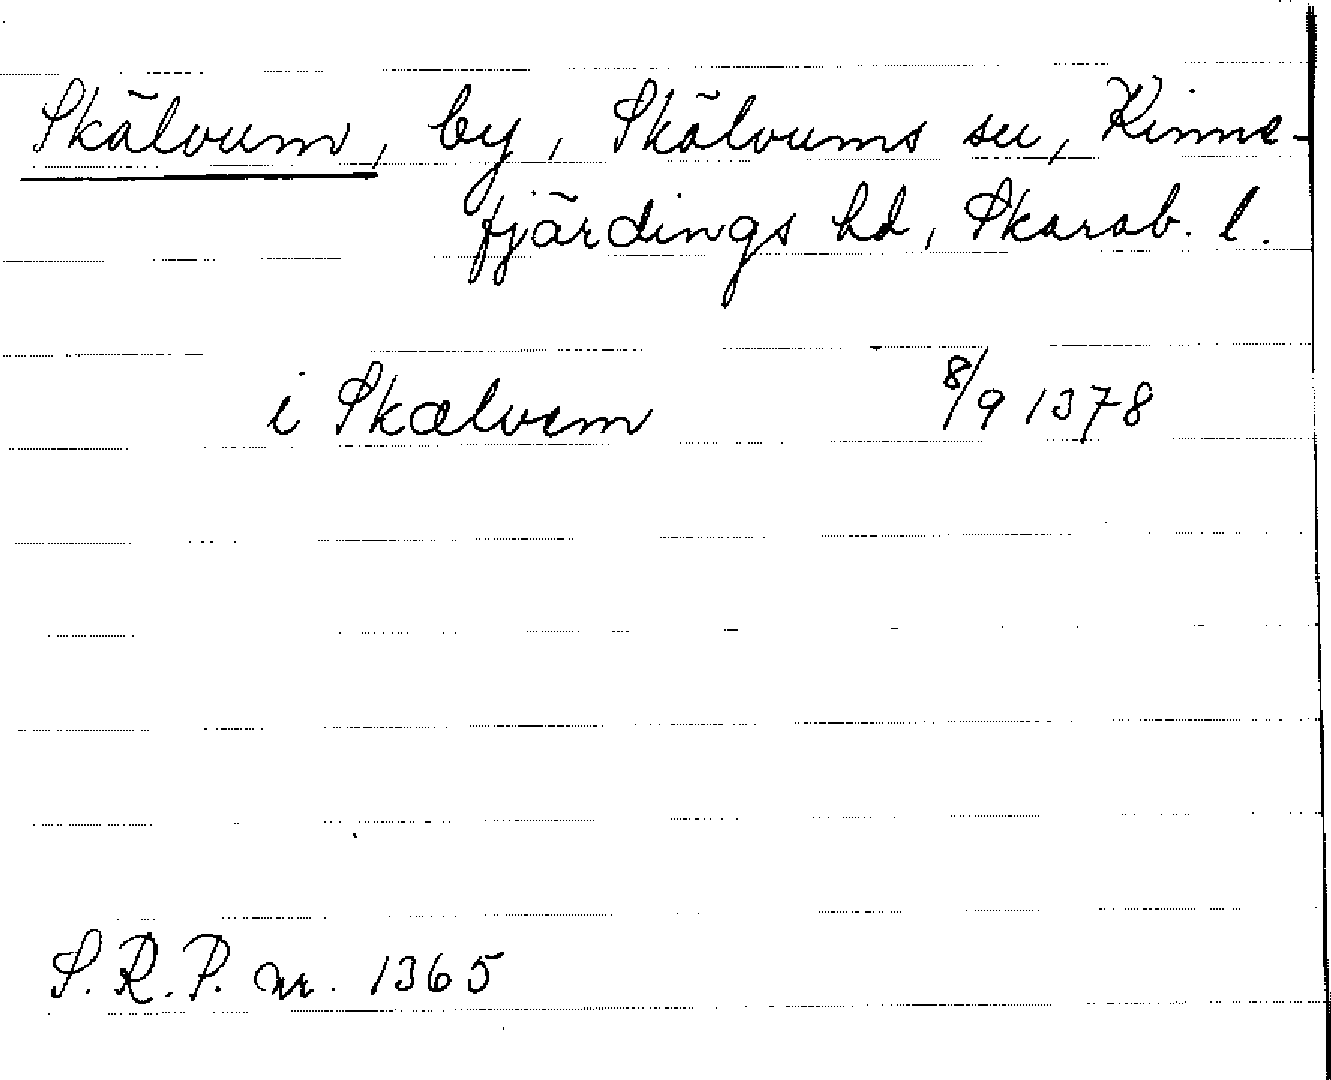 Skälvum, by, Skälvums sn, Kinne-
fjärdings hd, Skarab. l.
i Skælvem 8/9 1378
S.R.P. nr. 1365